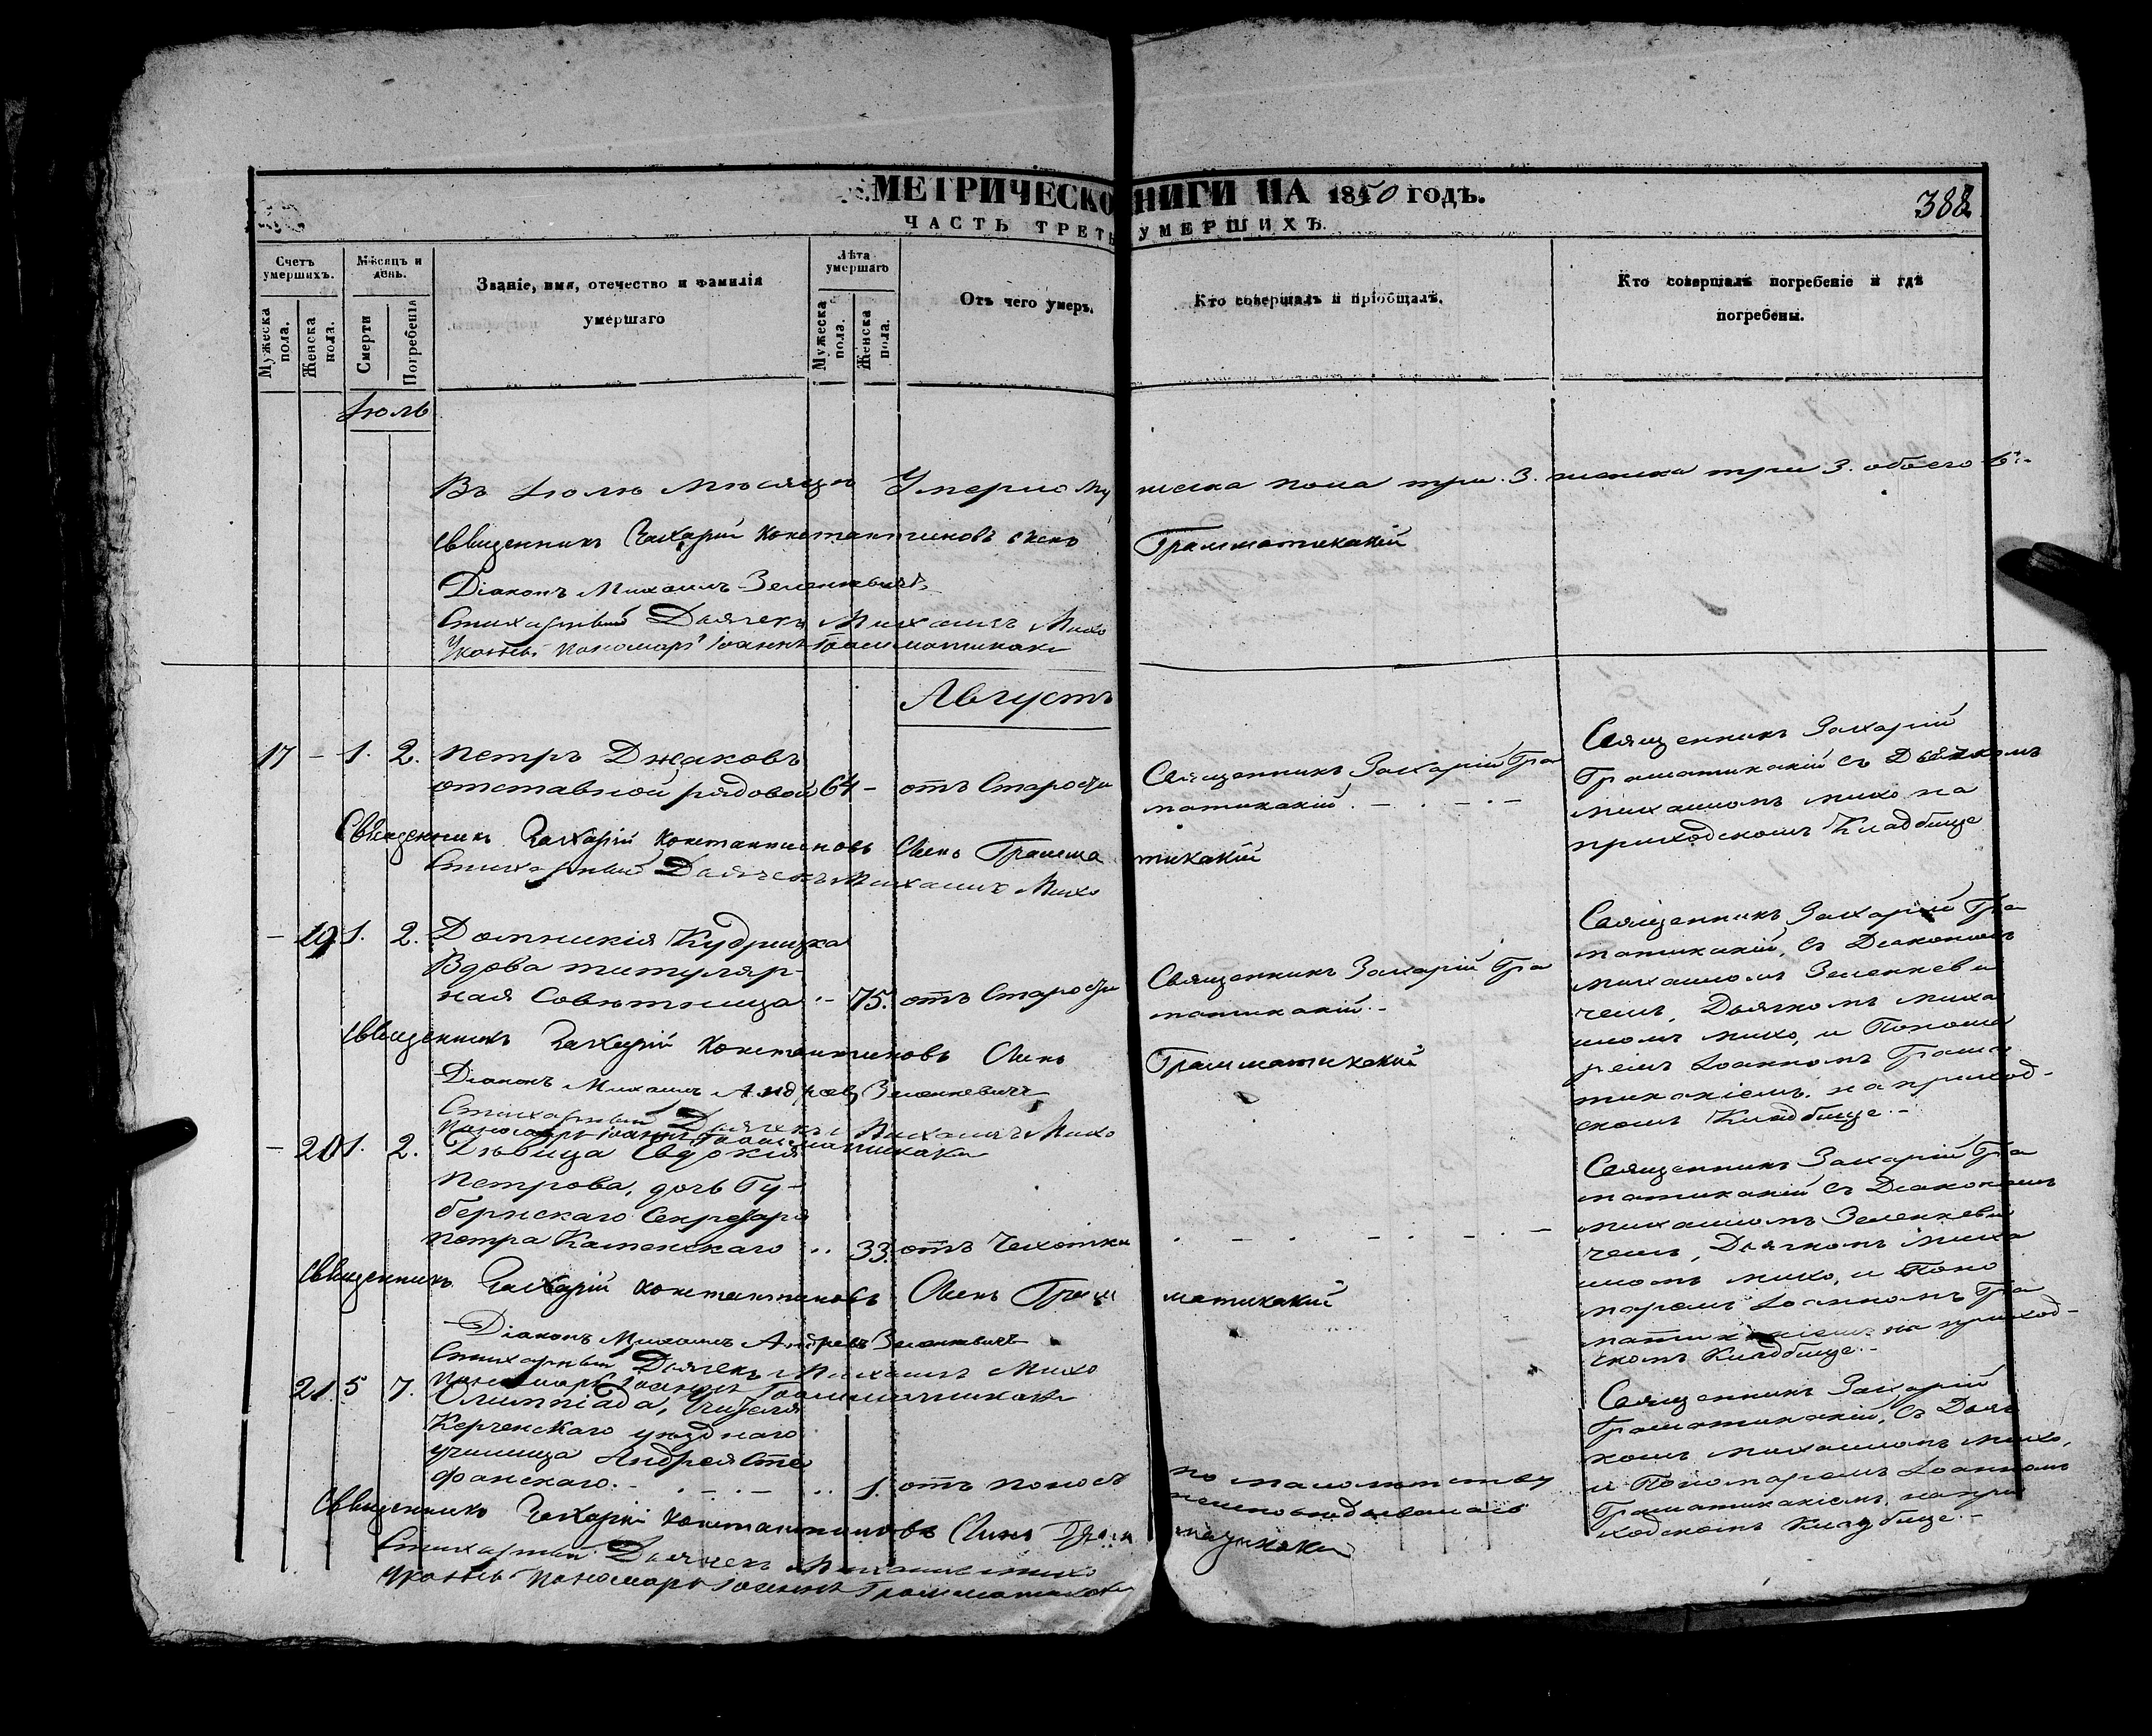 МЕТРИЧЕСКО НИГИ НА 1850 ГОДЪ.
388
ЧАСТЬ ТРЕТЬ УМЕРШИХЪ.
Счетъ умершихъ.
Мужеска пола.
Женска пола.
Мѣсяцъ и день.
Смерти
Погребенія
Званіе, имя, отечество и фамилія
умершаго
Лѣта умершаго
Мужеска пола.
Женска пола.
Отъ чего умеръ.
Кто совершалъ и пріобщалъ.
Кто совершалъ погребеніе и гдѣ
погребены.
Іюль
Въ Іюлѣ мѣсяцѣ Умерло му жеска пола три. 3. женска три 3. обоего 6.
Священникъ Захарій Константиновъ Сынъ Грамматикакій
Діаконъ Михаилъ Зеленкевичъ
Стихарный Дьячекъ Михаилъ Михо
Указный Пономарь Іоаннъ Грамматикаки
Августъ
17 - 1. 2. Петръ Джаковъ
отставной рядовой 64 - отъ Старости
Священникъ Захарій Гра
матикакій. - . - . -
Священникъ Захарій
Граматикакій съ Дьячкомъ
Михаиломъ Михо на
приходскомъ Кладбище
Священникъ Захарій Константиновъ Сынъ Грамма тикакій
Стихарный Дьячекъ Михаилъ Михо
- 19. 1. 2. Домникія Кудрицка
Вдова титуляр-
ная Совѣтница - 75. отъ Старости
Священникъ Захарій Гра
матикакій. -
Священникъ Захарій Гра
матикакій, съ Діакономъ
Михаиломъ Зеленкеви
чемъ, Дьячкомъ Миха
иломъ Михо, и Понома
ремъ Іоанномъ Грама
тикакіемъ, на приход-
скомъ Кладбище. -
Священникъ Захарій Константиновъ Сынъ Грамматикакій
Діаконъ Михаилъ Андреевъ Зеленкевичъ
Стихарный Дьячекъ Михаилъ Михо
Пономарь Іоаннъ Грамматикаки
- 20 1. 2. Дѣвица Евдокія
Петрова, дочь Гу-
бернскаго Секретаря
Петра Каменскаго .. 33. отъ Чехотки . - . - . - . - . -
Священникъ Захарій Гра
матикакій съ Діакономъ
Михаиломъ Зеленкеви
чемъ, Дьячкомъ Миха
иломъ Михо, и Поно
маремъ Іоанномъ Гра
матикакіемъ на приход-
скомъ Кладбище. -
Священникъ Захарій Константиновъ Сынъ Грам матикакій
Діаконъ Михаилъ Андреевъ Зеленкевичъ
Стихарный Дьячекъ Михаилъ Михо
Пономарь Іоаннъ Грамматикаки
21. 5 7. Олимпіада, Учителя
Керченскаго уѣзднаго
училища Андрея Сте
фанскаго. - . - . - .. 1. отъ поноса
по малолѣтству
неисповѣдывалась
Священникъ Захарій
Граматикакій, съ Дьяч
комъ Михаиломъ Михо,
и Пономаремъ Іоанномъ
Граматикакіемъ, на при
ходскомъ Кладбище. -
Священникъ Захарій Константиновъ Сынъ Грам матикакій
Стихарный Дьячекъ Михаилъ Михо
Указный Пономарь Іоаннъ Грамматикаки